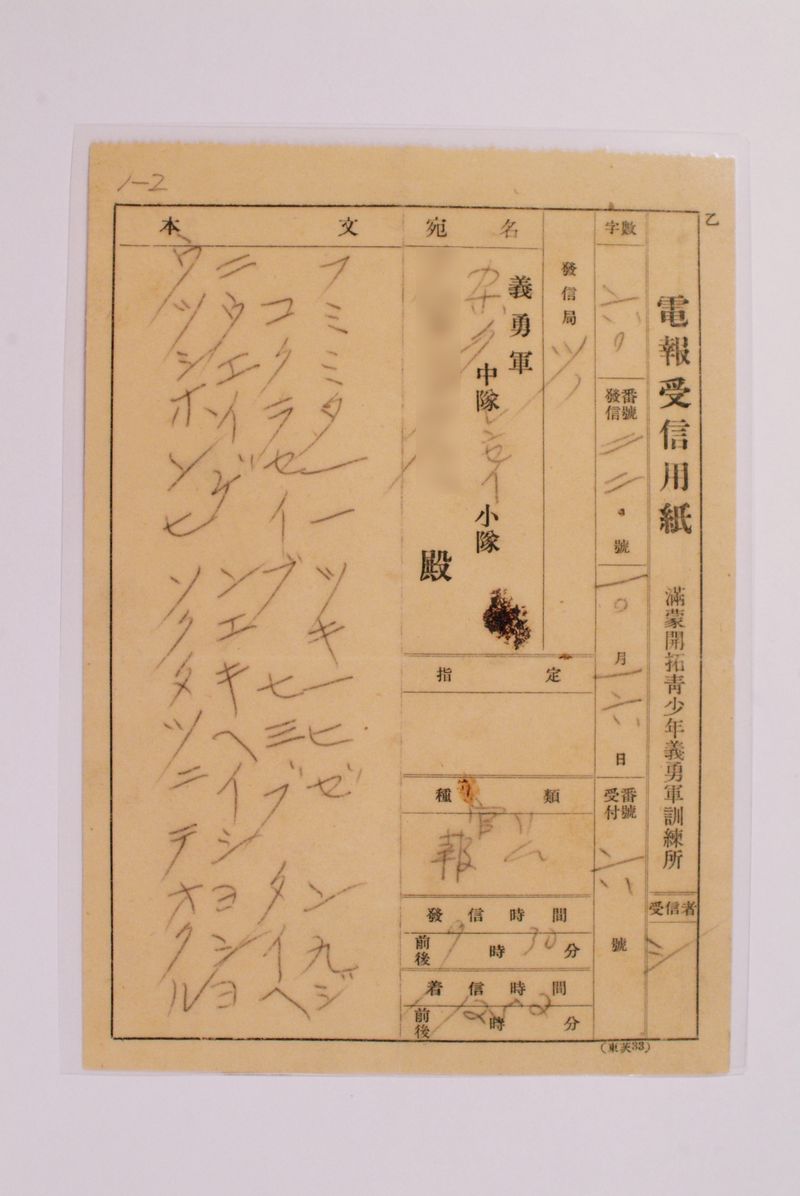 1-2
乙
電報受信用紙 滿蒙開拓靑少年義勇軍訓練所
受信者
三
字數
六〇
發信番號
二二 號
一〇月一六日
受付番號
六 號
發信局
ツ
宛名
義勇軍
中隊 小隊
殿
指定
種類
官公報
發信時間
前後 9時30分
着信時間
前後 時 分
本文
フミミター ツキ一ヒゼン九ジ
コクラセイブ七三ブタイヘ
ニウエイゲンエキヘイシヨンヨ
ウツシホンヒソクタツニテオクル
(東英33)